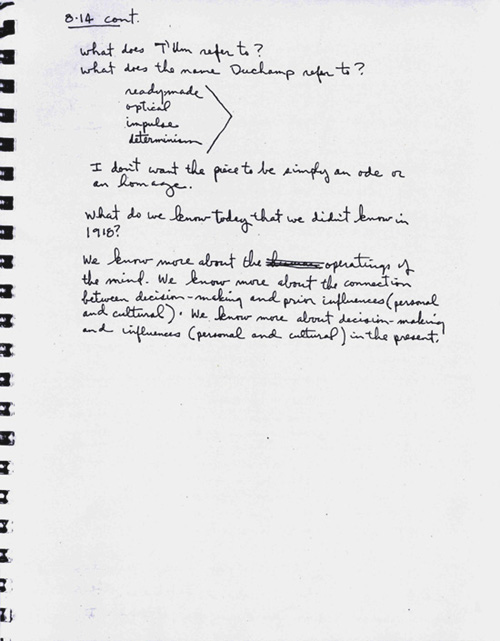 8.14 cont.
What does T'Um refer to?
What does the name Duchamp refer to?
readymade
optical
impulse
determinism
I don't want the piece to be simply an ode or
an homage.
What do we know today that we didn't know in
1918?
We know more about the operatings of
the mind. We know more about the connection
between decision-making and prior influences (personal
and cultural). We know more about decision-making
and influences (personal and cultural) in the present.